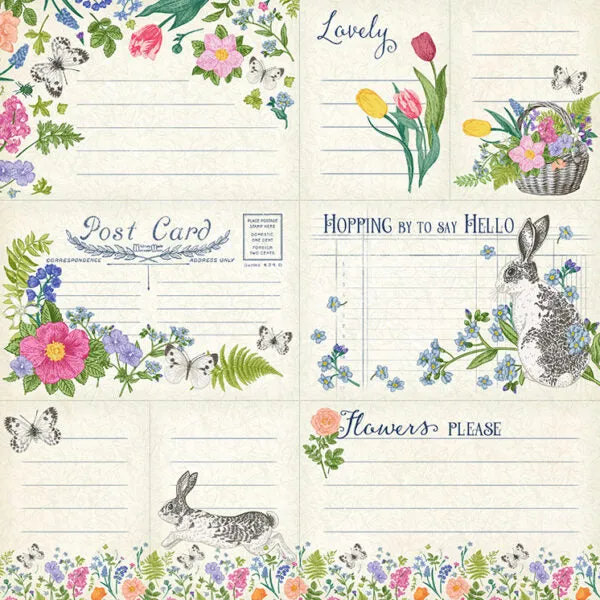 Lovely
Post Card
PLACE POSTAGE
STAMP HERE
DOMESTIC,
ONE CENT
FOREIGN
TWO CENTS
CORRESPONDENCE
ADDRESS ONLY
HOPPING BY TO SAY HELLO
Flowers PLEASE